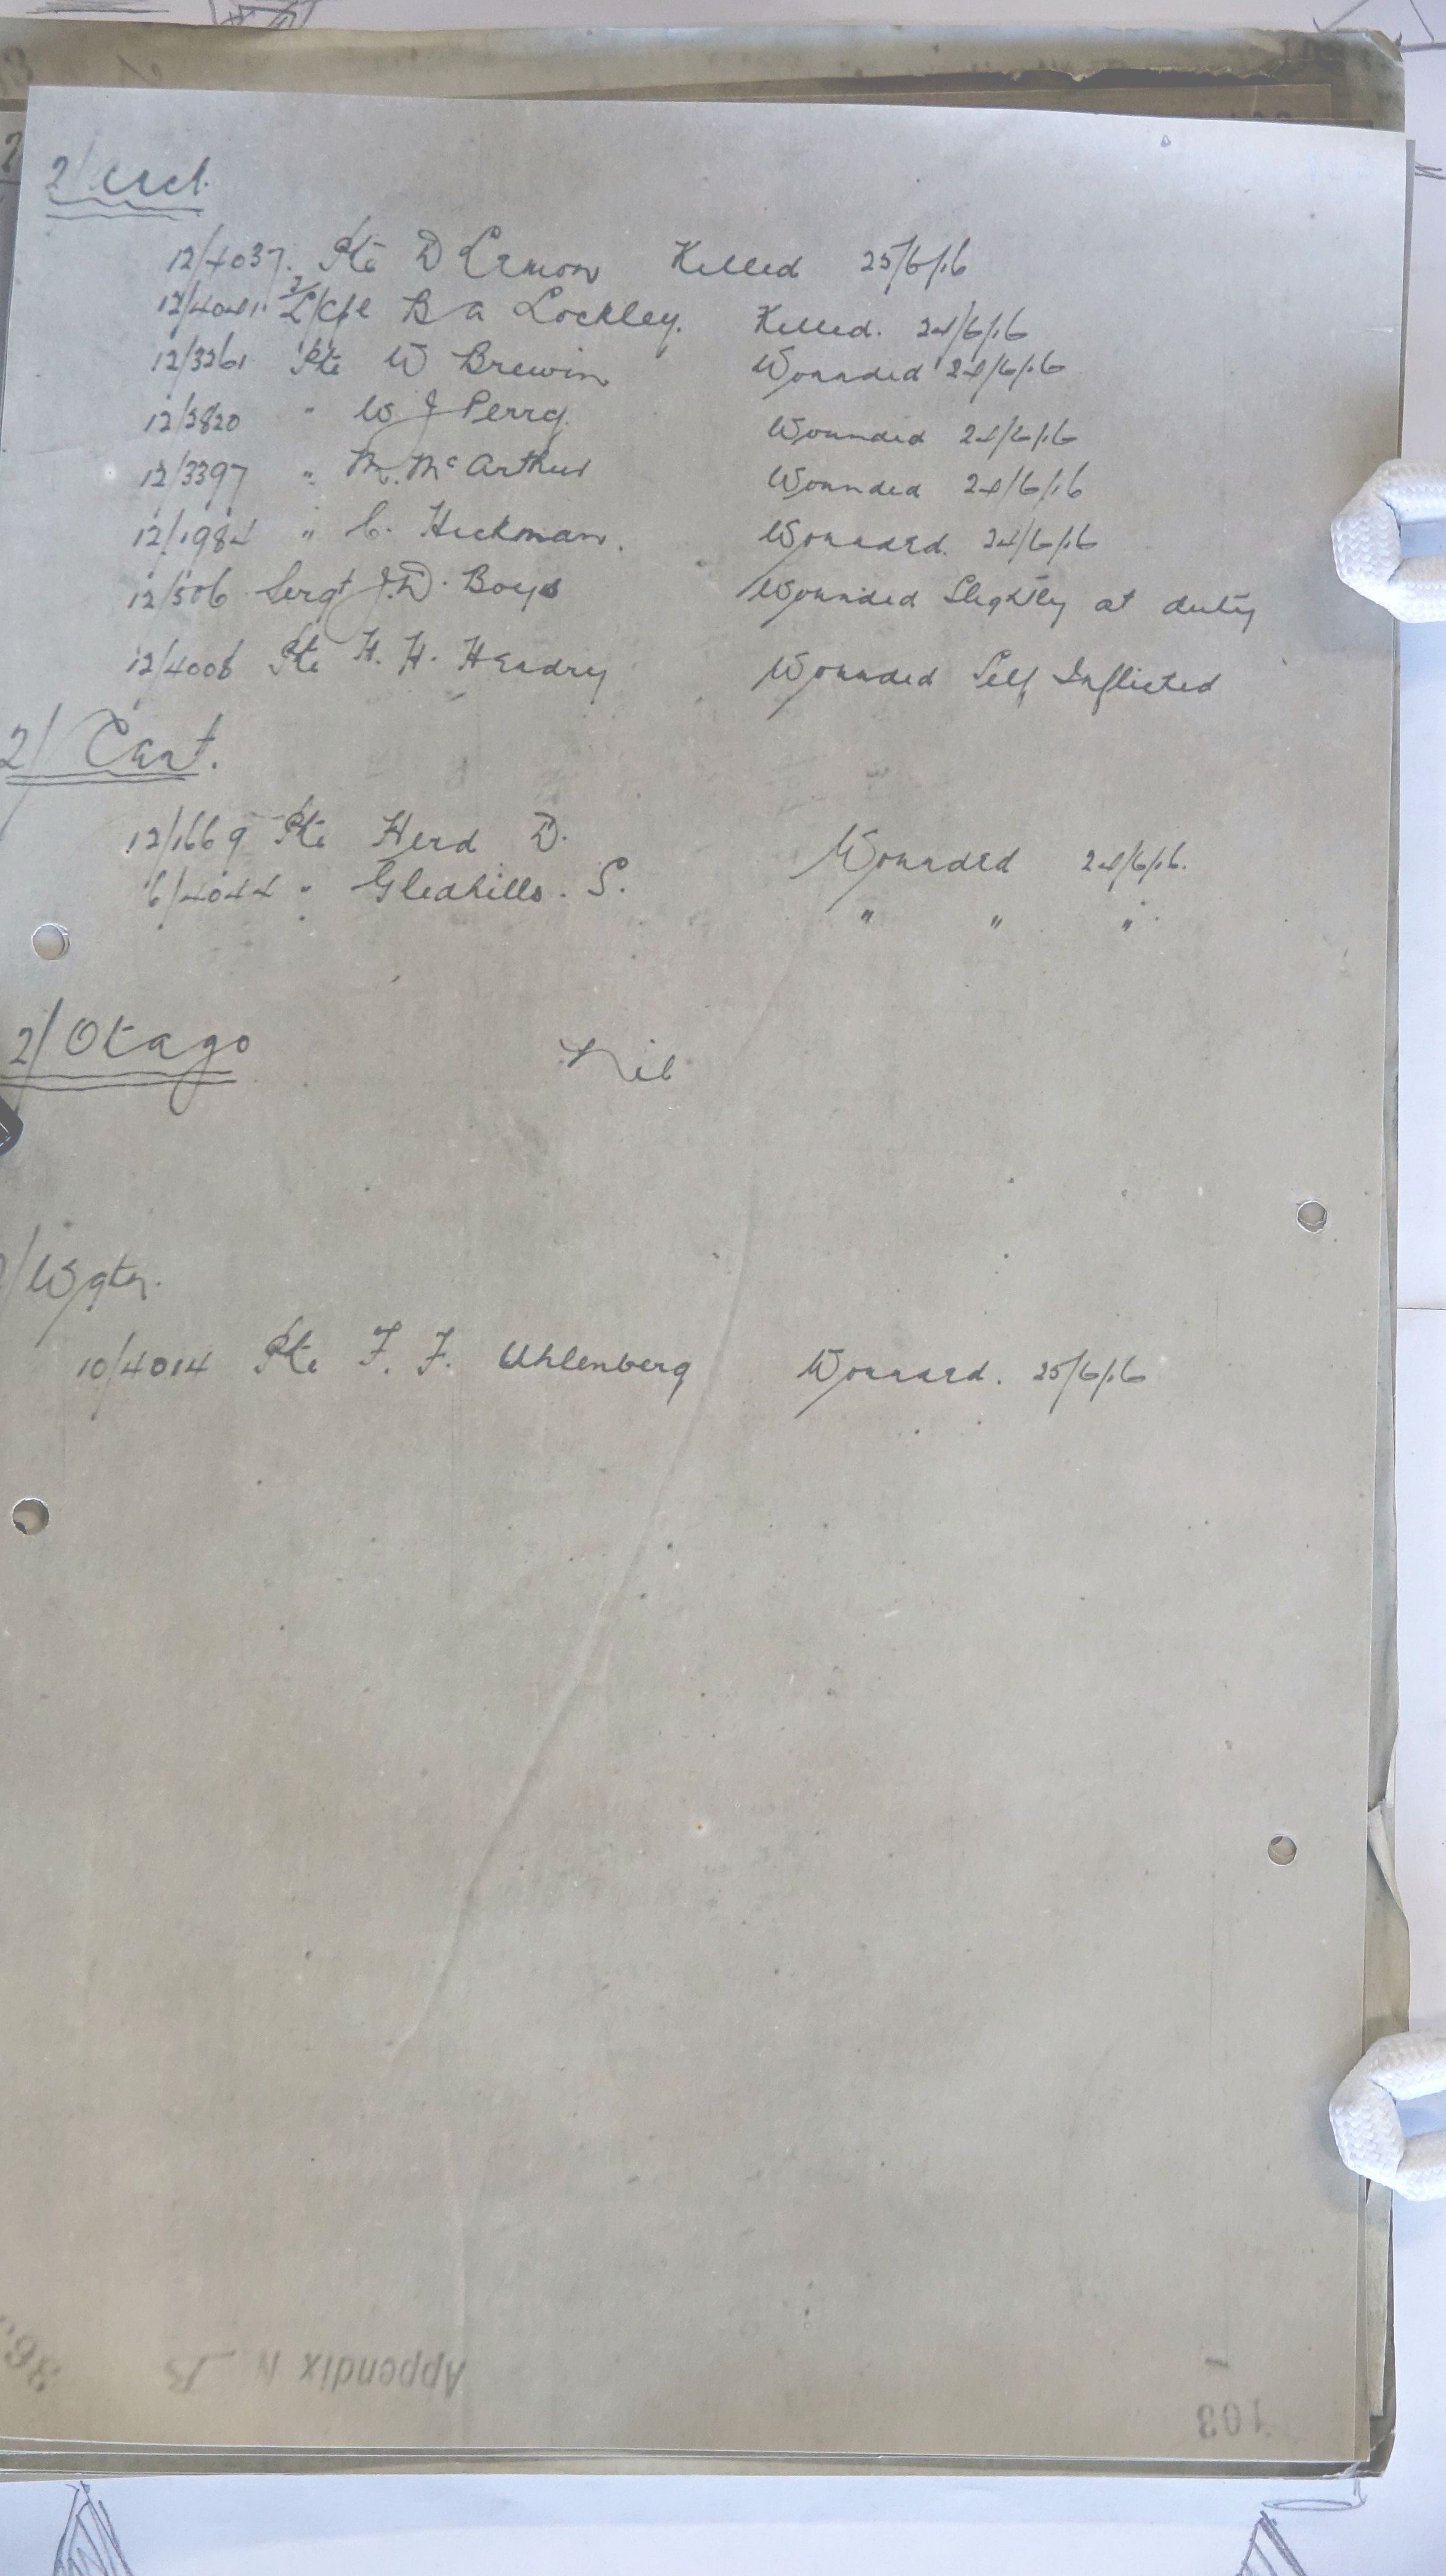 2/ Auck.
12/4037. Pte D Lemon Killed 25/6/16
12/4041. L/Cpl B A Lockley. Killed. 24/6/16
12/3261 Pte W Brewin Wounded 24/6/16
12/3820 " W J Perry. Wounded 24/6/16
12/3397 " M. McArthur Wounded 24/6/16
12/1984 " C. Hickman. Wounded. 24/6/16
12/506 Sergt J.D. Boys Wounded Slightly at duty
12/4006 Pte H. H. Hendry Wounded Self Inflicted
2/ Cant.
12/1669 Pte Herd D. Wounded 24/6/16.
6/4044 " Gledhills. S. " " "
2/ Otago Nil
2/ Wgtn.
10/4014 Pte F. F. Uhlenberg Wounded. 25/6/16
Appendix N B
103